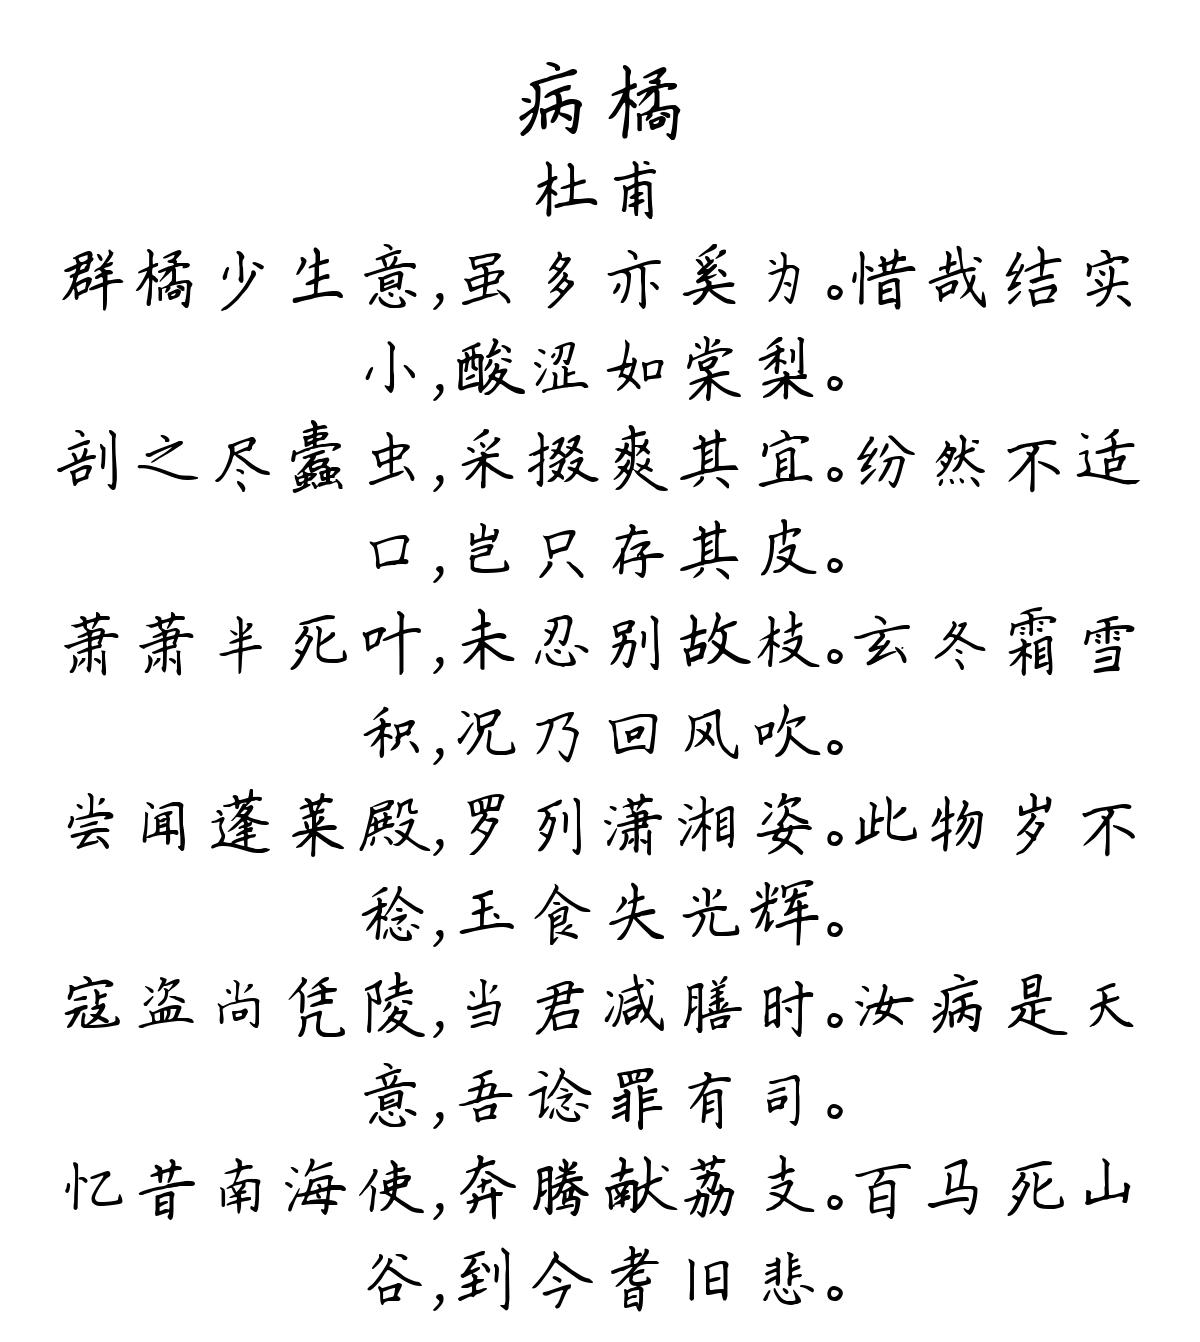 病橘
杜甫
群橘少生意,虽多亦奚为。惜哉结实
小,酸涩如棠梨。
剖之尽蠹虫,采掇爽其宜。纷然不适
口,岂只存其皮。
萧萧半死叶,未忍别故枝。玄冬霜雪
积,况乃回风吹。
尝闻蓬莱殿,罗列潇湘姿。此物岁不
稔,玉食失光辉。
寇盗尚凭陵,当君减膳时。汝病是天
意,吾谂罪有司。
忆昔南海使,奔腾献荔支。百马死山
谷,到今耆旧悲。